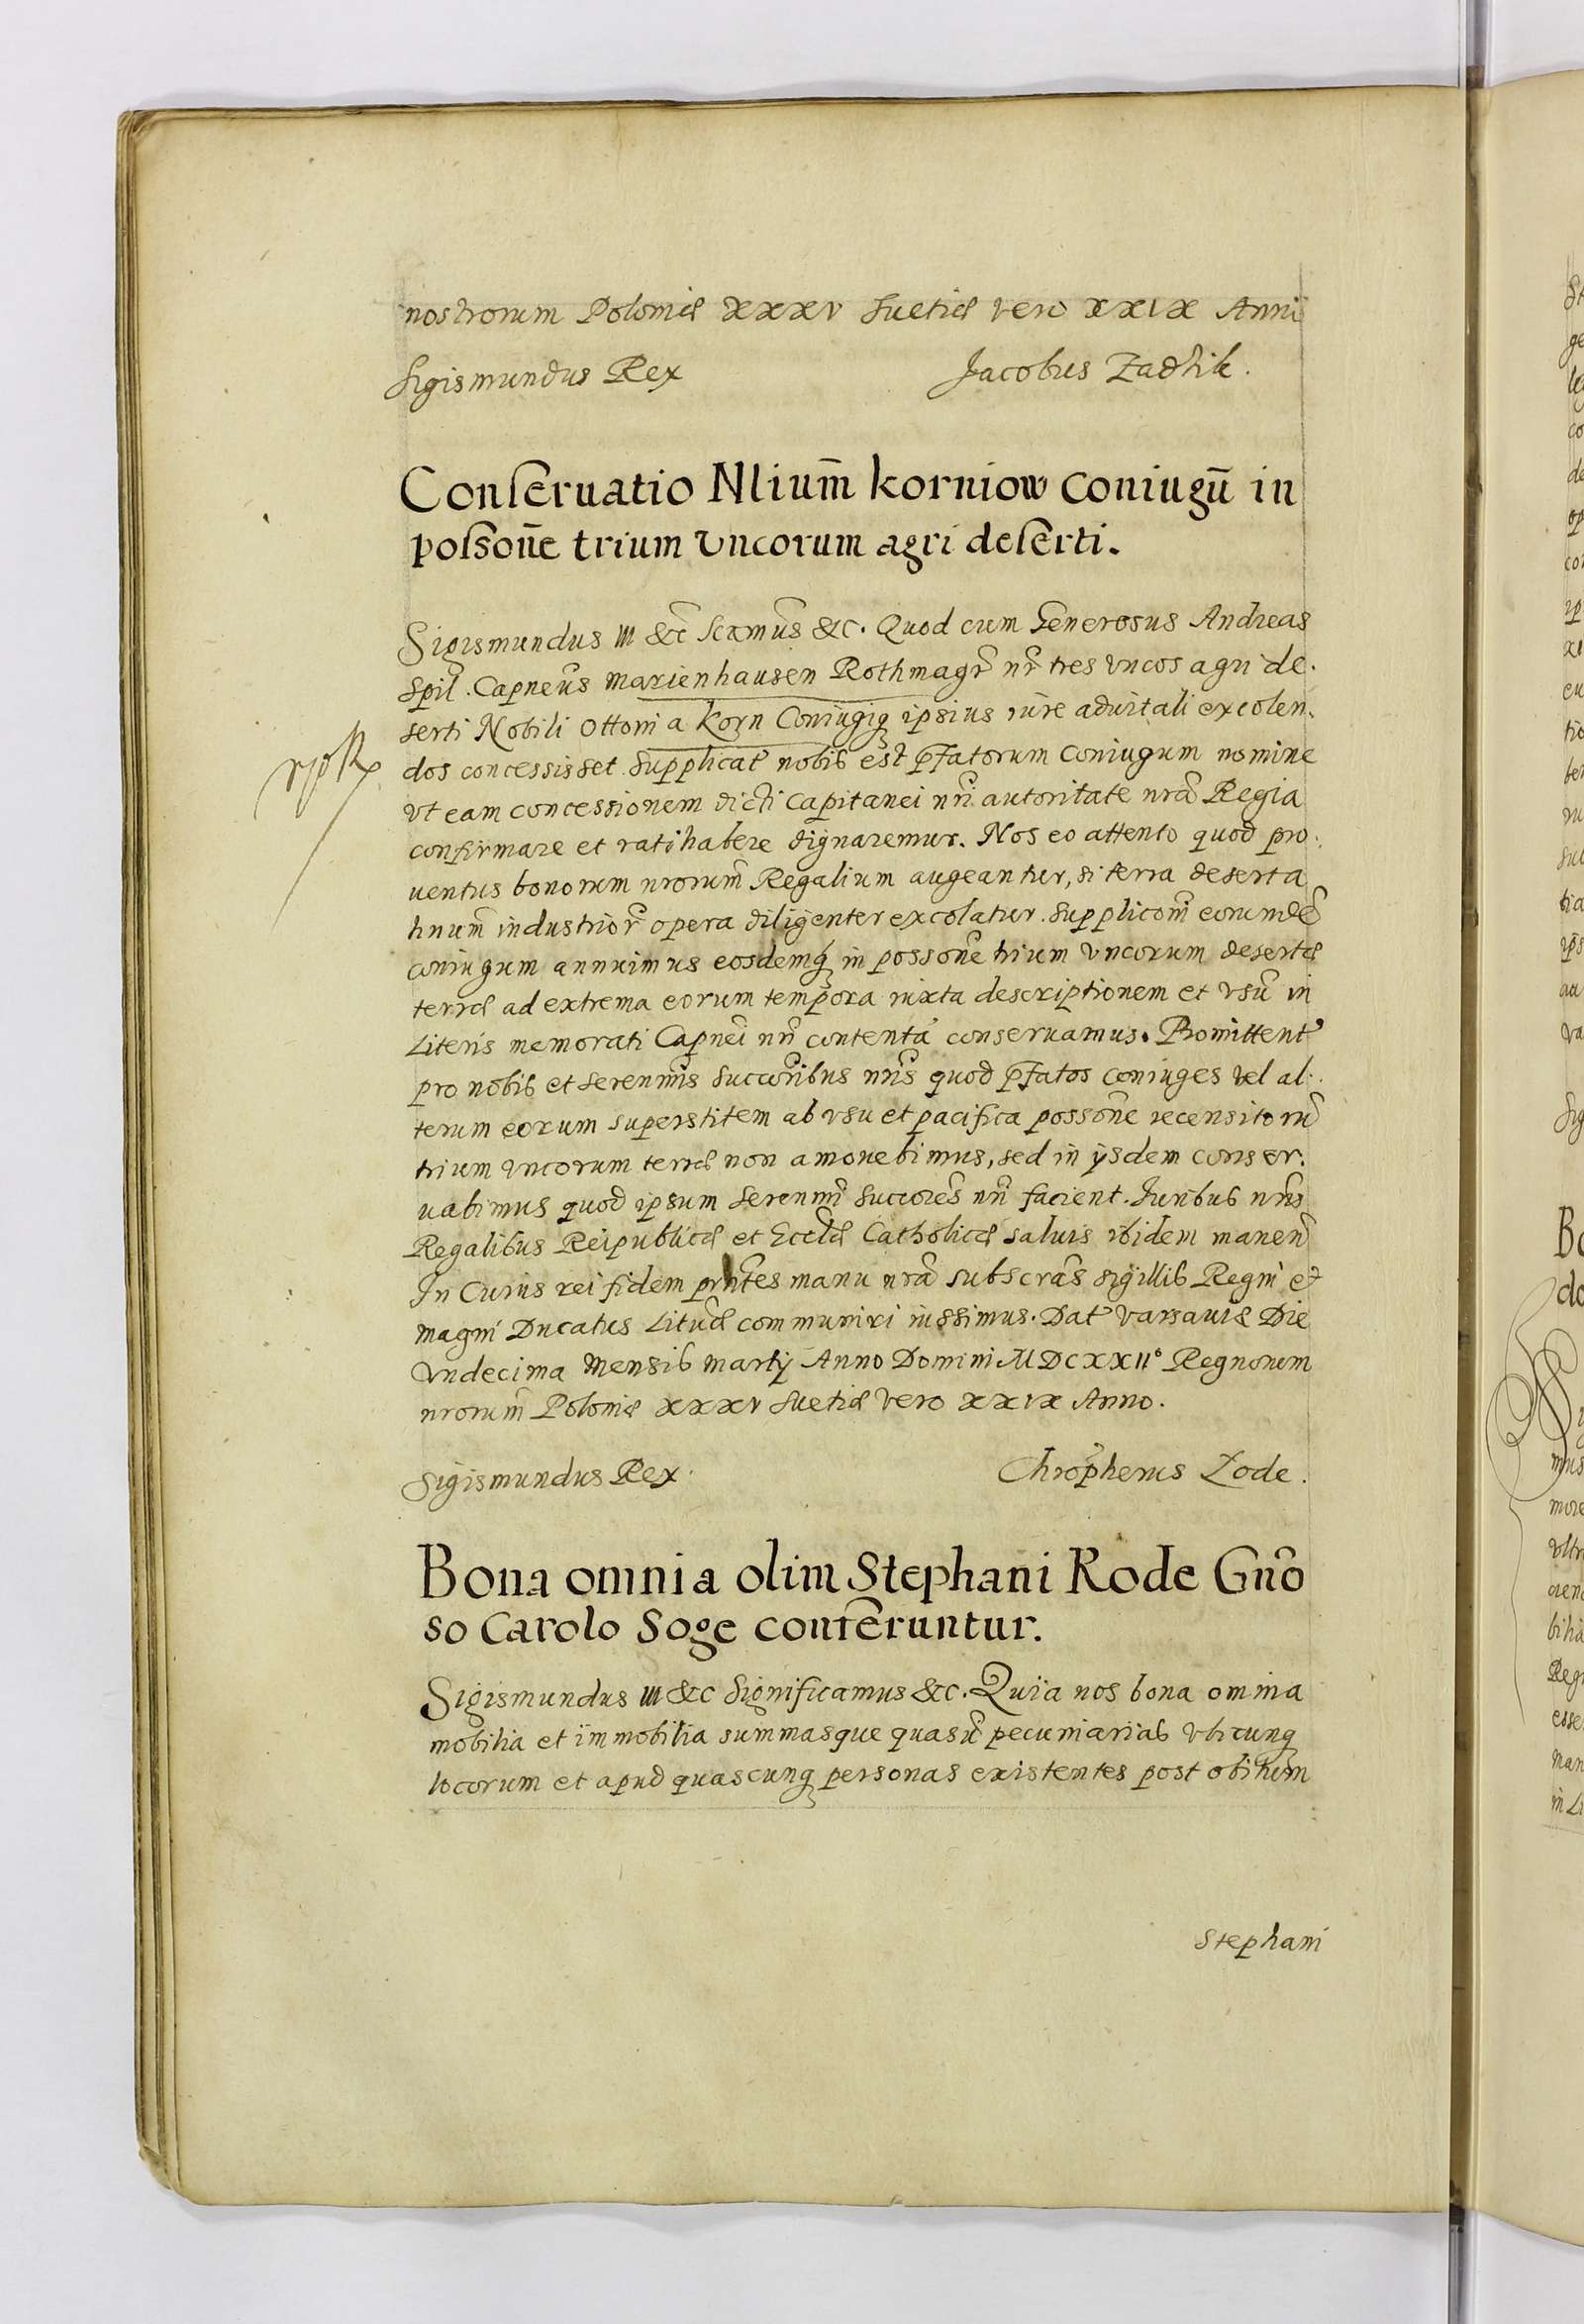 nostrorum Poloniæ XXXV Suetiæ vero XXIX Anni
Sigismundus Rex Jacobus Zadzik.
Conseruatio Nlium̄ korniow coniugū in
possonē trium vncorum agri deserti.
Sigismundus III &c scamus &c. Quod cum Generosus Andreas
Spil. Capneus Marienhausen Rothmagr nr tres vncos agri de-
serti Nobili Ottoni a Korn Coniugiq ipsius iure aduitali excolen-
dos concessisset. Supplicat nobis est pfatorum Coniugum nomine
vt eam concessionem dicti Capitanei nri autoritate nra Regia
confirmare et ratihabere dignaremur. Nos eo attento quod pro-
uentus bonorum nrorum Regalium augeantur, si terra deserta
hnum industrior opera diligenter excolatur. Supplicom eorumde
coniugum annuimus eosdemq in possone trium vncorum desertæ
terræ ad extrema eorum tempora iuxta descriptionem et vsu in
Literis memorati Capnei nri contenta conseruamus. Promittent
pro nobis et serenmis succoribus nris quod pfatos coniuges vel al-
terum eorum superstitem ab vsu et pacifica possone recensitoru
trium vncorum terræ non amouebimus, sed in ijsdem conser-
uabimus quod ipsum serenmi succores nri facient. Juribus nris
Regalibus Reipublicæ et Ecclæ Catholicæ saluis ibidem manen
In Cuius rei fidem pntes manu nra subscras sigillis Regni et
magni Ducatus Lituæ communiri iussimus. Dat Varsauiæ Die
Vndecima Mensis Martij Anno Domini MDCXXIIº Regnorum
nrorum Poloniæ XXXV Suetiæ vero XXIX Anno.
Sigismundus Rex. Chropherus Zode.
Bona omnia olim Stephani Rode Gño
so Carolo Soge conferuntur.
Sigismundus III &c Significamus &c. Quia nos bona omnia
mobilia et immobilia summasque quasu pecuniarias vbicunq
locorum et apud quascunq personas existentes post obitum
Stephani